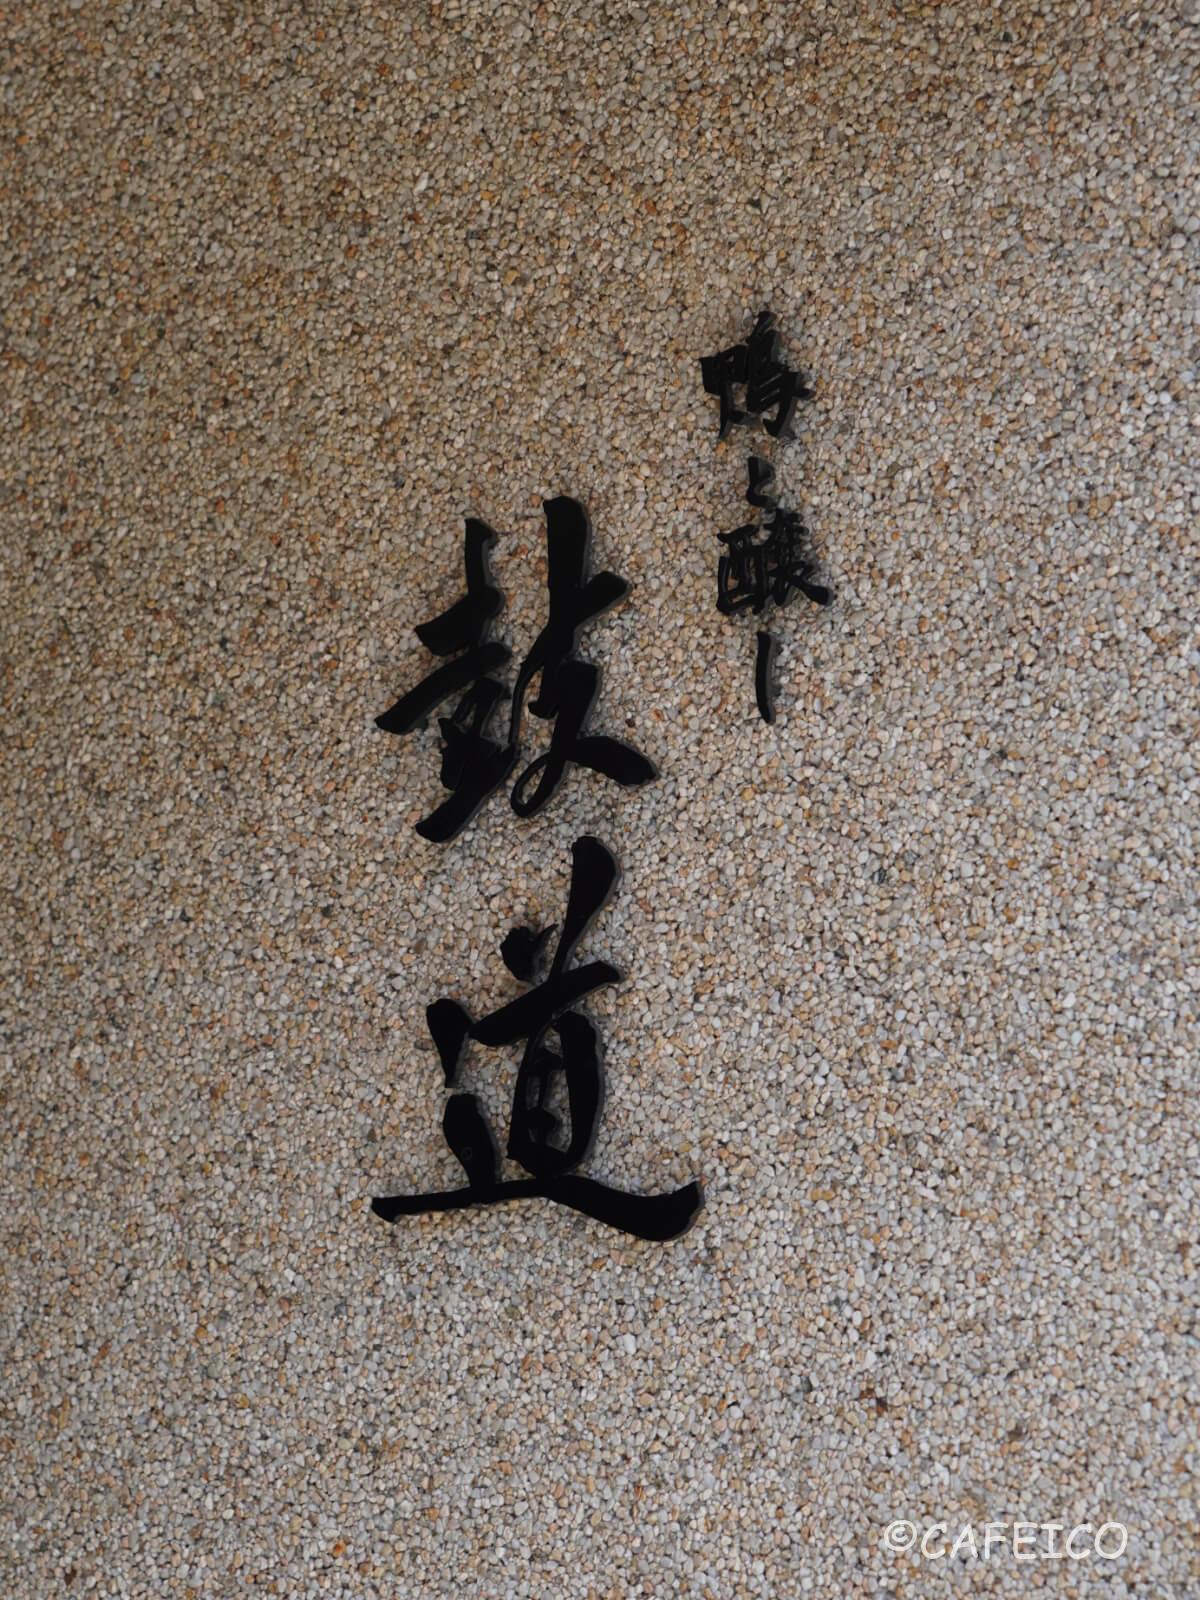 鴨と醸し
鼓道
©CAFEICO